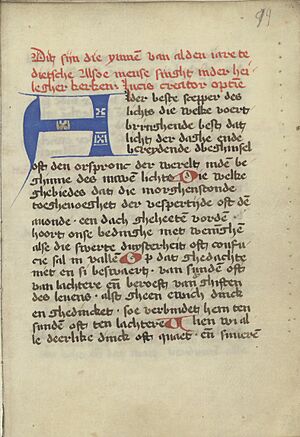 Dit sijn die ymnen van alden iare te
dietsche Alsoe mense singht inder hei-
legher kerken. Lucis creator optie
der beste scepper des
lichts die welke voert
bringhende best dat
licht der daghe ende
bereydende dbeghinsel
oft den orspronc der werelt inden be
ghinne des nuwen lichts Die welke
ghebiedes dat die morghenstonde
toeghevoeght der vespertijt oft den
auonde een dach gheheeten vorde
hoort onse bedinghe met weninghen
alse die swerte duysterheit oft confu
cie sal in valle Op dat ghedachte
met en si beswaert van sunden oft
van lachtere en berooft van ghiften
des leuens alst gheen ewich dinck
en ghedincket soe verbindet hem ten
sunden oft ten lachtere lien wi al
le deerlike dinck oft quaet en suueren